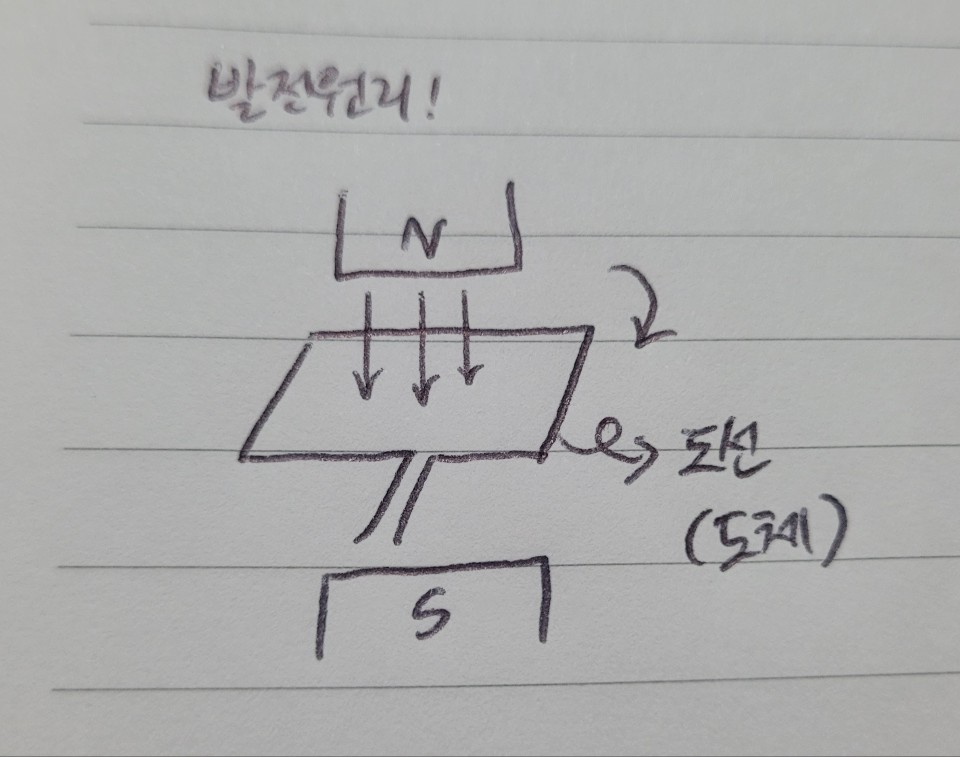 발전원리!
N
도선
(도체)
S